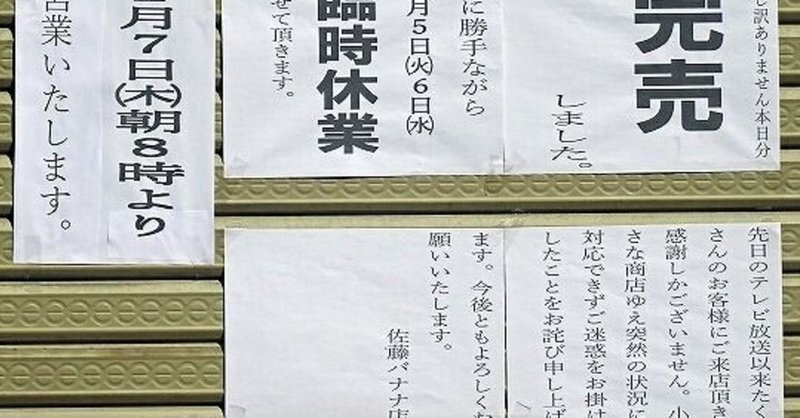 し訳ありません本日分
完売
しました。
に勝手ながら
月5日㈫6日㈬
臨時休業
せて頂きます。
月7日㈭朝8時より
営業いたします。
先日のテレビ放送以来たく
さんのお客様にご来店頂き
感謝しかございません。小
さな商店ゆえ突然の状況に
対応できずご迷惑をお掛け
したことをお詫び申し上げ
ます。今後ともよろしくお
願いいたします。
佐藤バナナ店